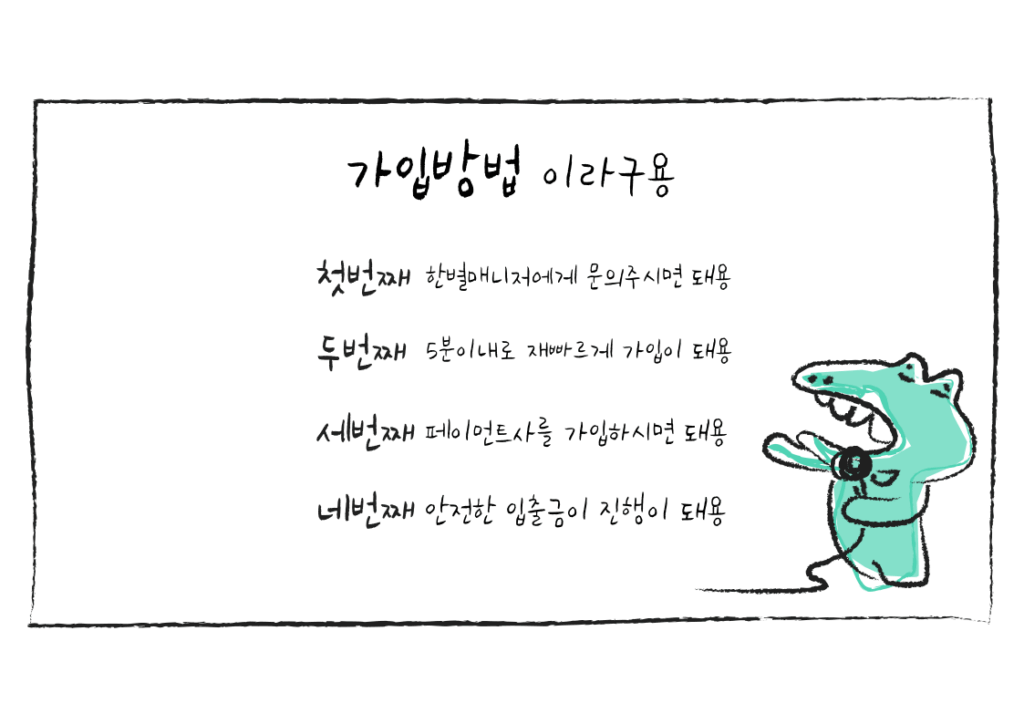 가입방법 이라구용
첫번째 한별매니저에게 문의주시면 돼용
두번째 5분이내로 재빠르게 가입이 돼용
세번째 페이먼트사를 가입하시면 돼용
네번째 안전한 입출금이 진행이 돼용